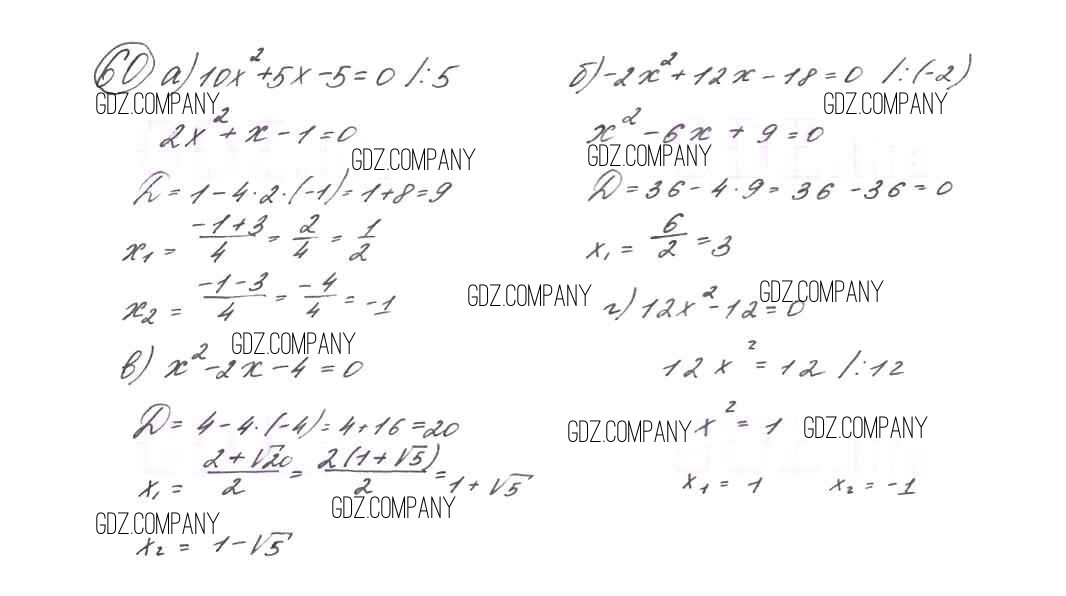 60 а) 10x²+5x-5=0 /:5
GDZ.COMPANY
2x²+x-1=0
GDZ.COMPANY
D=1-4·2·(-1)=1+8=9
x₁ = (-1+3)/4 = 2/4 = 1/2
x₂ = (-1-3)/4 = -4/4 = -1
GDZ.COMPANY
в) x²-2x-4=0
D=4-4·(-4)=4+16=20
x₁ = (2+√20)/2 = 2(1+√5)/2 = 1+√5
GDZ.COMPANY
GDZ.COMPANY
x₂ = 1-√5
б) -2x²+12x-18=0 /:(-2)
GDZ.COMPANY
x²-6x+9=0
GDZ.COMPANY
D=36-4·9=36-36=0
x₁ = 6/2 = 3
GDZ.COMPANY
GDZ.COMPANY
г) 12x²-12=0
12x²=12 /:12
GDZ.COMPANY
x²=1
GDZ.COMPANY
x₁ = 1 x₂ = -1